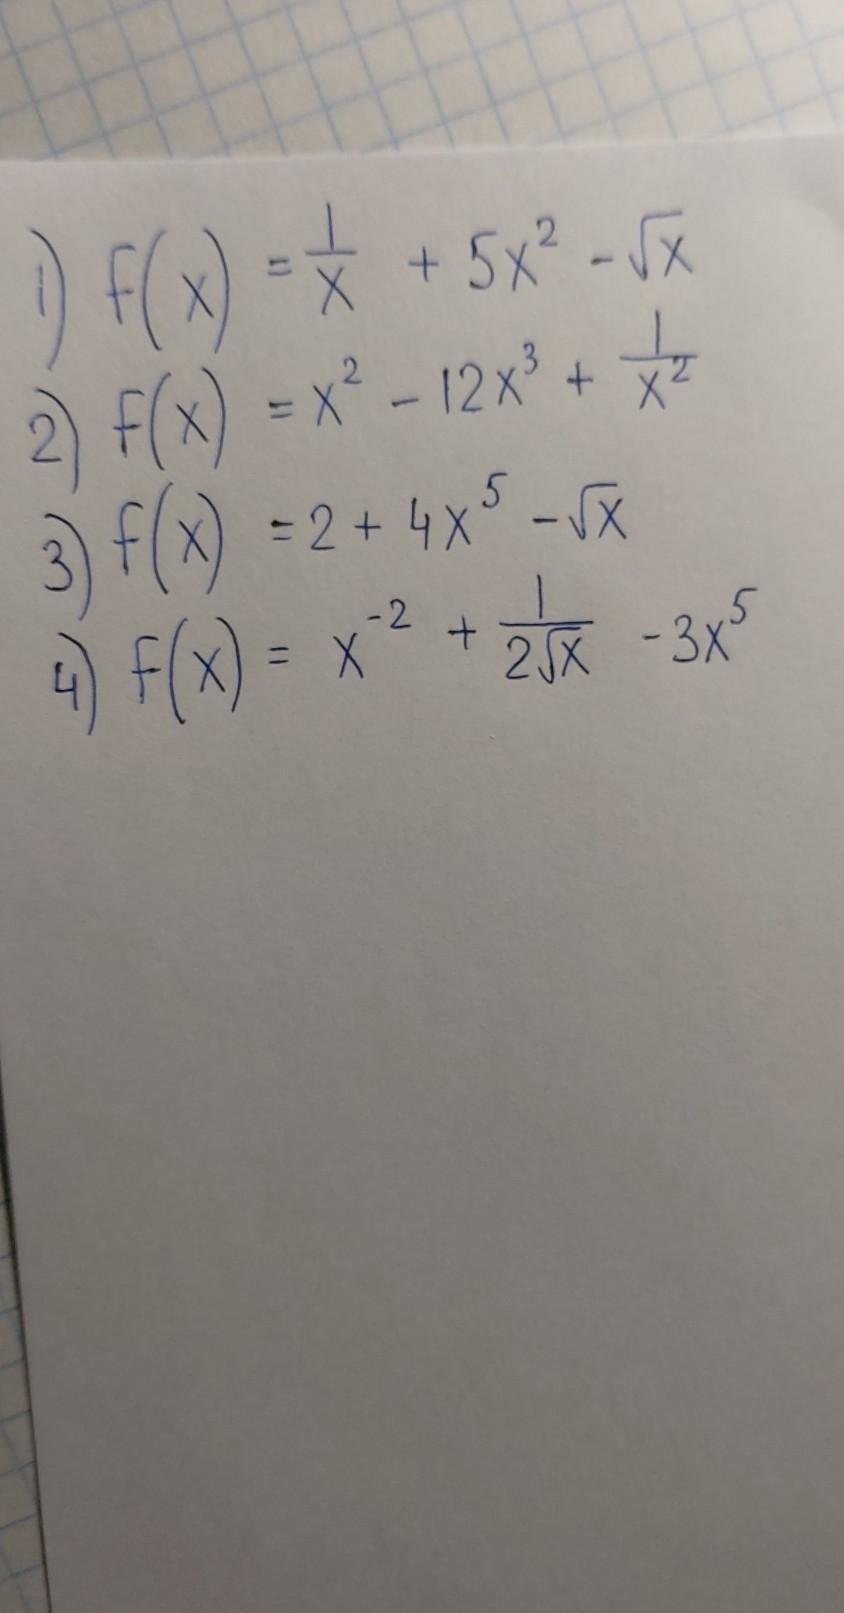 1) f(x) = 1/x + 5x² - √x
2) f(x) = x² - 12x³ + 1/x²
3) f(x) = 2 + 4x⁵ - √x
4) f(x) = x⁻² + 1/(2√x) - 3x⁵